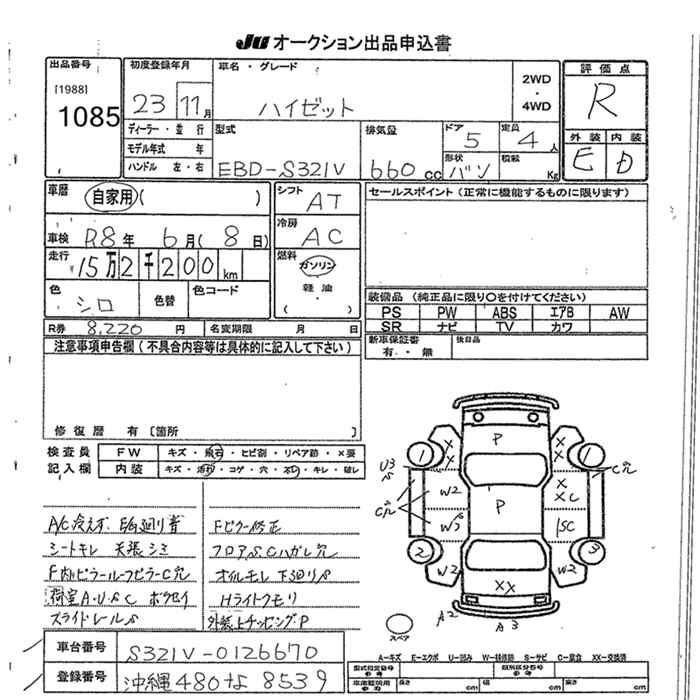 JU オークション出品申込書
出品番号
[1988]
1085
初度登録年月
23 11月
車名・グレード
ハイゼット
2WD
・
4WD
評価点
R
外装 内装
E D
ディーラー・並行
モデル年式 年
ハンドル 左・右
型式
EBD-S321V
排気量
660cc
ドア
5
定員
4人
形状
バン
積載
Kg
車歴
自家用( )
シフト
AT
車検 R8年 6月( 8日)
冷房
AC
走行
15万2千200km
燃料
ガソリン
軽油
( )
色
シロ
色替
色コード
R券 8,220円
名変期限 月 日
セールスポイント(正常に機能するものに限ります)
装備品(純正品に限り○を付けてください)
PS PW ABS エアB AW
SR ナビ TV カワ
新車保証書
有・無
後日品
注意事項申告欄(不具合内容等は具体的に記入して下さい)
修復歴 有〔箇所
検査員
記入欄
FW キズ・飛石・ヒビ割・リペア跡・×要
内装 キズ・汚れ・コゲ・穴・スレ・キレ・破レ
A/C冷えず E/G廻り音
シートキレ 天張シミ
F内ピラールーフピラーC穴
荷室A・U・S・C
スライドレールS
Fピラー修正
フロアS、Cハガレ穴
オイルモレ 下廻りS
Hライトクモリ
外装上チッピングP
車台番号 S321V-0126670
登録番号 沖縄480 な 8539
P
P
XX
1
1
2
3
U3
S
C穴
C穴
W2
W2
W2
XC
SC
A2
A3
スペア
A-キズ E-エクボ U-凹み W-補修跡 S-サビ C-腐食 XX-交換済
型式指定番号
類別区分番号
長さ cm 幅 cm 高さ cm